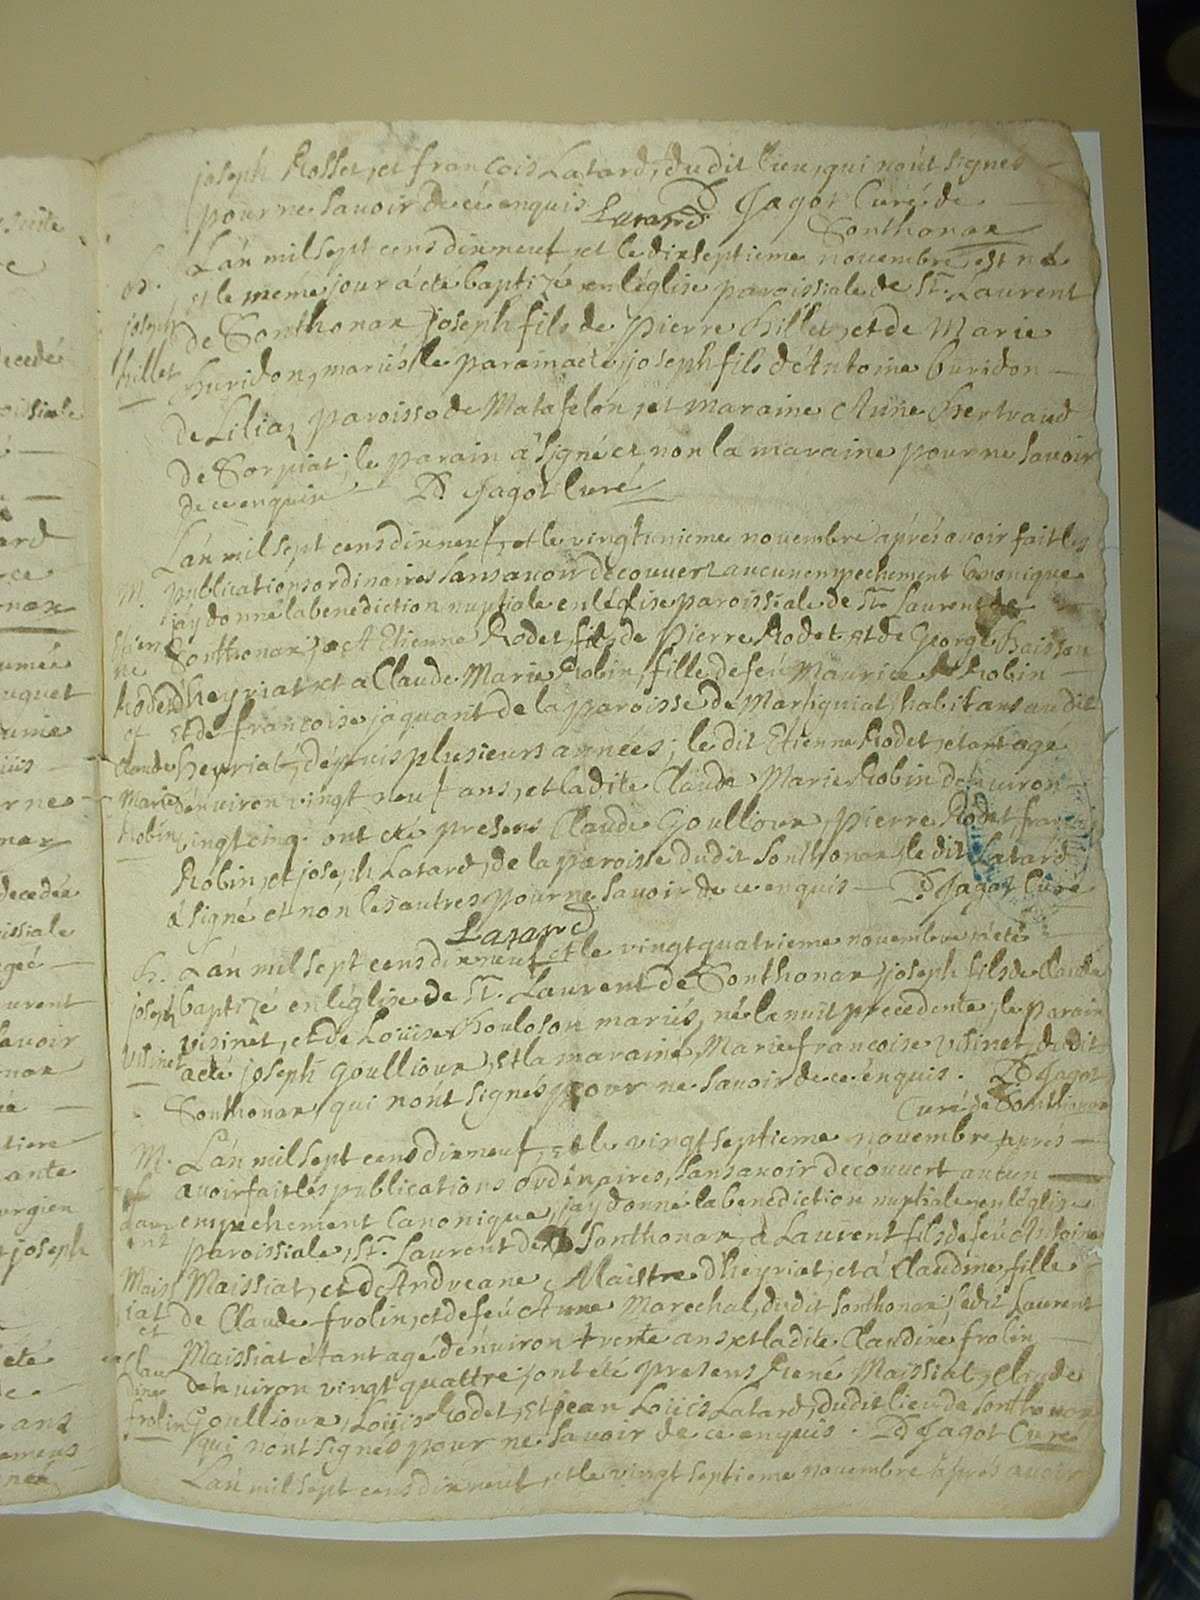 joseph Rosset, et francois Latard, dudit lieu, qui nont signés
pour ne savoir de ce enquis Latard D Jagot Curé de
Sonthonax
L'an mil sept cens dixneuf, et le dixseptieme novembre est né
et le meme jour a été baptizé en l'église paroissiale de St. Laurent
joseph
de Sonthonax joseph fils de pierre Billet, et de Marie
Billet
Buridon, mariés le parain a eté joseph fils d'Antoine Buridon
de Liliaz paroisse de Matafelon, et maraine Anne Bertraud
de Sorpiat; le parain a signé et non la maraine pour ne savoir
de ce enquis D. Jagot Curé
L'an mil sept cens dixneuf, et le vingtunieme novembre aprés avoir fait les
M.
publications ordinaires sans avoir decouvert aucun empechement Canonique
jay donné la benediction nuptiale en l'eglise paroissiale de St. Laurent de
Etien
Sonthonax, a Etienne Rodet, fils de pierre Rodet et de George Baisson
ne
Rodet
d'heyriat et a Claude Marie Robin, fille de feu Maurice Robin
et
et de francoise jaquant de la paroisse de Martigniat, habitans audit
Claude
heyriat, dépuis plusieurs années; le dit Etienne Rodet, etant agé
Marie
d'enuiron vingt neuf ans, et ladite Claude Marie Robin denuiron
Robin
vingt cinq. ont eté presens Claude Goullioux, pierre Rodet, francois
Robin, et joseph Latard, de la paroisse dudit Sonthonax, le dit Latard
a signé et non les autres pour ne savoir de ce enquis D. Jagot Curé
Latard
B. L'an mil sept cens dixneuf et le vingtquatrieme novembre a eté
joseph
baptizé en l'église de St. Laurent de Sonthonax, joseph fils de Claude
visinet, et de Louise Bouloson mariés, né la nuit precedente, le parain
Visinet
a eté joseph Goullioux, et la maraine Marie francoise visinet, dudit
Sonthonax, qui nont signés pour ne savoir de ce enquis. D Jagot
Curé de Sonthonax
M. L'an mil sept cens dixneuf, et le vingt septieme novembre, aprés
avoir fait les publications ordinaires, sans avoir decouvert aucun
empechement Canonique, jay donné la benediction nuptiale en l'église
Laur
ent
paroissiale, St. Laurent de Sonthonax, a Laurent fils de feu Antoine
Maiss
Maissiat, et d'Andreane Maistre d'heyriat, et a Claudine fille
iat
et
de Claude frolin, et de feu Anne Marechal, dudit Sonthonax, ledit Laurent
Maissiat étant agé d'enuiron trente ans et ladite Claudine frolin
Clau
dine
denuiron vingt quattre, ont été presens René Maissiat, Claude
frolin
Goullioux, Loüis Rodet, et jean Loüis Latard, dudit lieu de Sonthonax
qui nont signés pour ne savoir de ce enquis. D Jagot Curé
L'an mil sept cens dixneuf, et le vingt septieme novembre aprés avoir